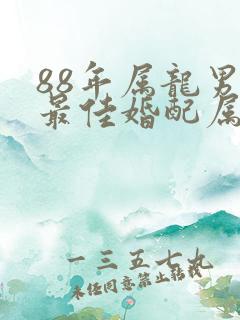 88年属龍男
最佳婚配属
一三五七九
未经同意禁止转载